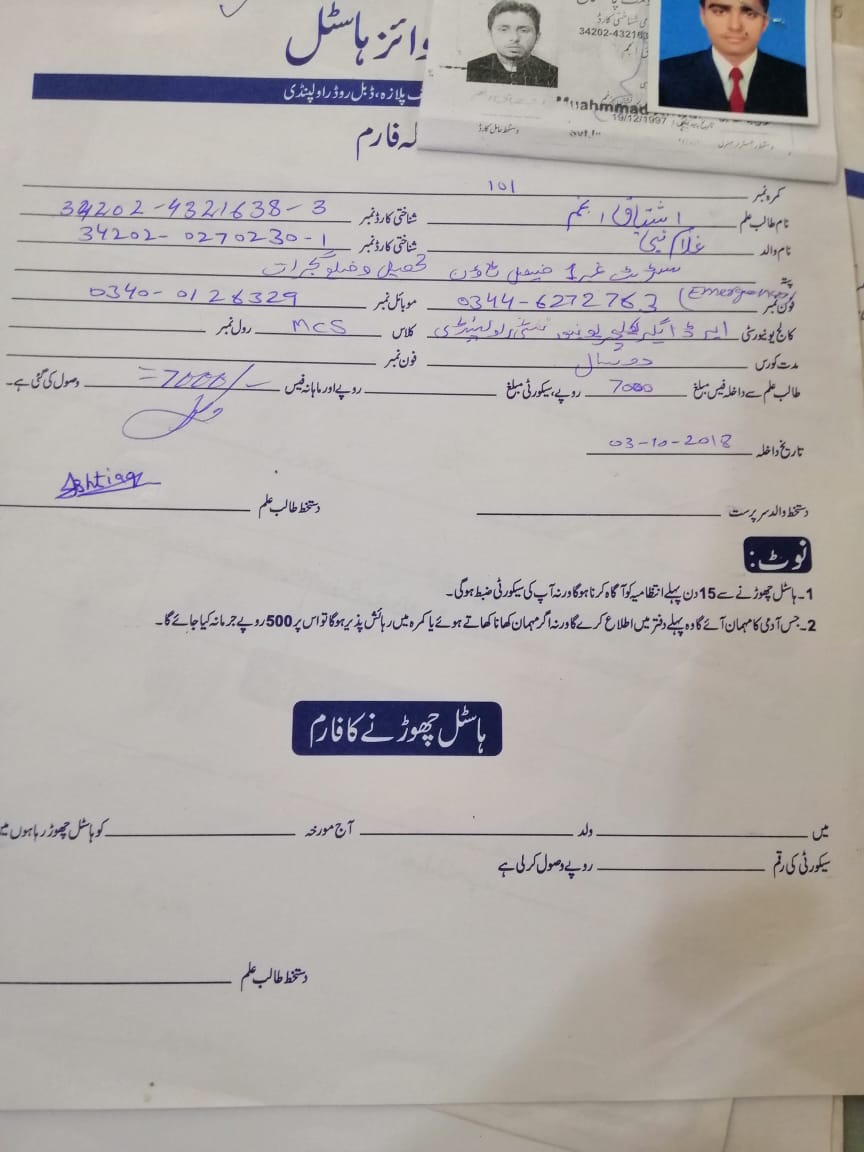 وائز ہاسٹل
پلازہ، ڈبل روڈ راولپنڈی
فارم
34202-43216
Muahmmad
19/12/1997
دستخط حامل کارڈ
کمرہ نمبر 101
نام طالب علم اشتیاق انجم شناختی کارڈ نمبر 34202-4321638-3
نام والد غلام نبی شناختی کارڈ نمبر 34202-0270230-1
پتہ سٹریٹ نمبر 1 فیصل ٹاؤن تحصیل و ضلع گجرات
فون نمبر 0344-6272763 (Emergency) موبائل نمبر 0340-0126329
کالج یونیورسٹی ایرڈ ایگریکلچر یونیورسٹی راولپنڈی کلاس MCS رول نمبر
مدت کورس دو سال فون نمبر
طالب علم سے داخلہ فیس مبلغ 7000 روپے، سیکورٹی مبلغ روپے اور ماہانہ فیس =7000/- وصول کی گئی ہے۔
تاریخ داخلہ 03-10-2018
Ashtiaq
دستخط والد سرپرست دستخط طالب علم
نوٹ:
1۔ ہاسٹل چھوڑنے سے 15 دن پہلے انتظامیہ کو آگاہ کرنا ہوگا ورنہ آپ کی سیکورٹی ضبط ہوگی۔
2۔ جس آدمی کا مہمان آئے گا وہ پہلے دفتر میں اطلاع کرے گا ورنہ اگر مہمان کھانا کھاتے ہوئے یا کمرہ میں رہائش پذیر ہوگا تو اس پر 500 روپے جرمانہ کیا جائے گا۔
ہاسٹل چھوڑنے کا فارم
میں ولد آج مورخہ کو ہاسٹل چھوڑ رہا ہوں میں
سیکورٹی کی رقم روپے وصول کر لی ہے
دستخط طالب علم